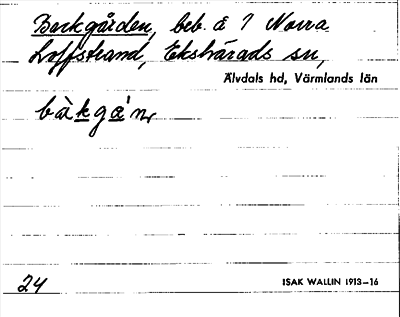 Backgården, beb. å 7 Norra
Loffstrand, Ekshärads sn,
Älvdals hd, Värmlands län
bàkgá'n,
24
ISAK WALLIN 1913–16